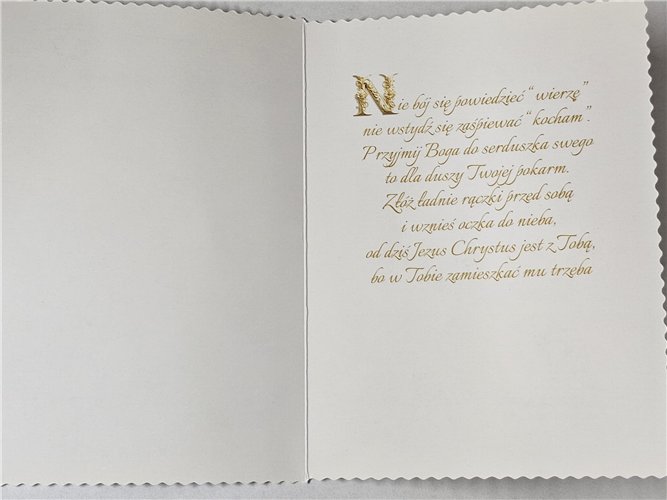 Nie bój się powiedzieć “wierzę”
nie wstydź się zaśpiewać “kocham”.
Przyjmij Boga do serduszka swego
to dla duszy Twojej pokarm.
Złóż ładnie rączki przed sobą
i wznieś oczka do nieba,
od dziś Jezus Chrystus jest z Tobą,
bo w Tobie zamieszkać mu trzeba